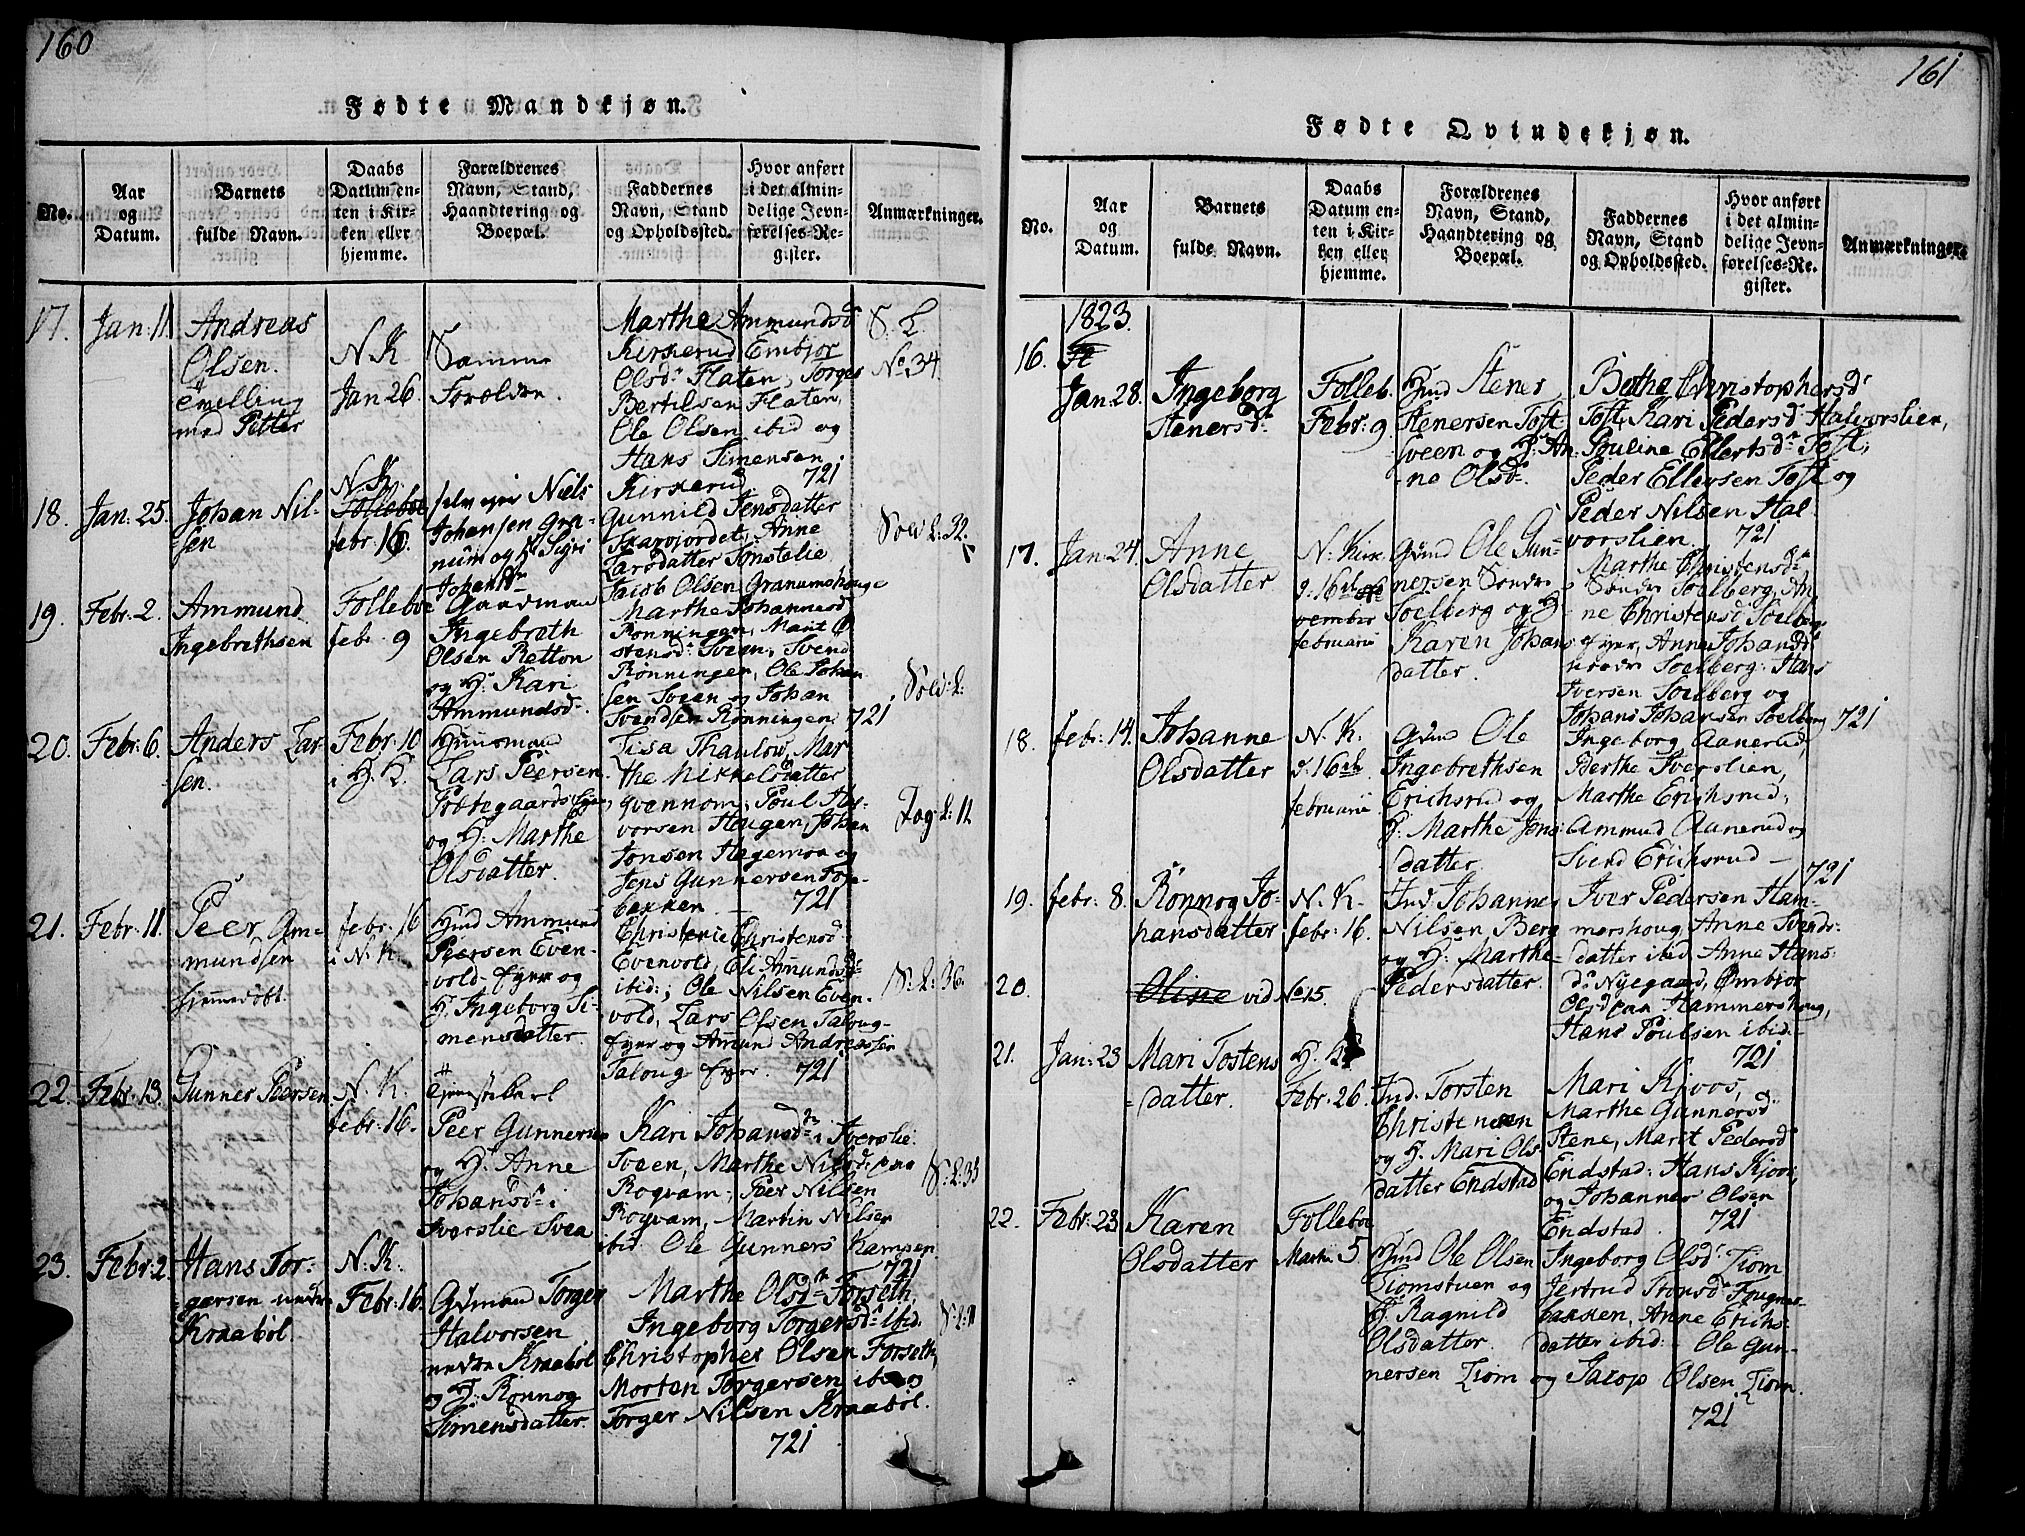 160
Fødte Mandkjøn.
No.
Aar
og
Datum.
Barnets
fulde Navn.
Daabs
Datum en-
ten i Kir-
ken eller
hjemme.
Forældrenes
Navn, Stand,
Haandtering og
Boepæl.
Faddernes
Navn, Stand
og Opholdssted.
Hvor anført
i det almin-
delige Jevn-
førelses-Re-
gister.
Anmærkninger.
17.
Jan: 11
Andreas
Olsen.
tvelling
med Petter
N. K
Jan 26
Samme
Foreldre.
Marthe Ammundsd
Kirkerud Embjør
Olsdr Flaten, Torger
Bertilsen Flaten,
Ole Olsen ibid og
Hans Simensen
Kirkerud. 721
S. L.
No 34.
18.
Jan: 25.
Johan Nil-
sen
N. K.
Folleboe
febr: 16
Niels
Johansen Gra-
num og H. Sigri
Johansdr
Gunnild Jensdatter
Skavjordet, Anne
Larsdatter Tonstelie
Jacob Olsen Granumshouge
Sow L: 32.
19.
Febr: 2.
Ammund
Ingebrethsen
Folleboe
febr: 9
Gaardman
Ingebreth
Olsen Retton
og H. Kari
Ammundsd
Marthe Johannesd
Rønningen, Marit
stensdr Sveen, Svend
Rønningen, Ole Johan
sen Sveen og Johan
Svendsen Rønningen 721
Sow: L:
20.
Febr: 6.
Anders Lar-
sen.
Febr: 10
i H. K.
Huusmand
Lars Peersen
Præstegaards Eyer,
og H. Marthe
Olsdatter.
Lisa Thaulow, Mar
the Mikkelsdatter
qvennom, Poul Hal-
vorsen Haugen, Johan
Jonsen Hagemoe og
Jens Gunnersen For-
bakken. 721
Fag: L: 11
21.
Febr: 11.
Peer Am-
mundsen
hjemmedøbt.
febr: 16
i N. K.
Hmd Ammund
Peersen Even-
vold Eyer og
H. Ingeborg Si-
mensdatter.
Christenie Christensd
Evenvold, Eli Amundsd
ibid; Ole Nilsen Even-
vold, Lars Olsen Taloug-
Eyer og Amund Andreassen
Taloug Eyer. 721
S: L: 36.
22.
Febr: 13.
Gunner Peersen
N. K
febr: 16.
Tjenestekarl
Peer Gunnersen
og H. Anne
Johansdr i
Sverslie Svea
Kari Johansdr i Sverslie
Sveen, Marthe Nilsd
Rogvam, Peer Nilsen
Rogvam, Martin Nilsen
ibid. Ole Gunners Kampen
721
S: L: 35
23.
Febr: 2.
Hans Tor-
gersen nedre
Kraabøl.
N. K:
Febr: 16.
Gdmand Torger
Halvorsen
nedre Kraabøl
og H. Rønnog
Simensdatter.
Marthe Olsdr Forseth
Ingeborg Torgersdr ibid.
Christopher Olsen Forseth,
Morten Torgersen ibid og
Torger Nilsen Kraabøl.
721
161
Fødte Qvindekjøn.
No.
Aar
og
Datum.
Barnets
fulde Navn.
Daabs
Datum en-
ten i Kir-
ken eller
hjemme.
Forældrenes
Navn, Stand,
Haandtering og
Boepæl.
Faddernes
Navn, Stand
og Opholdssted.
Hvor anført
i det almin-
delige Jevn-
førelses-Re-
gister.
Anmærkninger.
1823.
16.
Jan: 28.
Ingeborg
Stenersdr
Folleb.
Febr: 9.
Hmd Stener
Stenersen Toft
Sveen og H. An-
ne Olsdr
Berthe Christophersdr
Toft, Kari Pedersdr Halvorslien,
Pouline Ellertsdr Toft,
Peder Ellevsen Toft og
Peder Nilsen Hal
vorslien. 721
17.
Jan: 24.
Anne
Olsdatter
N: Kirk
d. 16de
vember
februarii
Gdmd Ole Gun-
nersen Søndre
Soelberg og H.
Karen Johans
datter.
Marthe Christensdr
Søndre Soelberg, An
ne Christensd Soelberg
Eyer, Anne Johansdr
nedre Soelberg: Hans
Iversen Soelberg og
Johans Johansen Soelberg 721
18.
febr: 14.
Johanne
Olsdatter
N. K.
d. 16de
februarii
Gdmd Ole
Ingebrethsen
Erichsrud og
H. Marthe Jens
datter
Ingeborg Aanerud,
Berthe Iverslien,
Marthe Erichsrud,
Ammund Aanerud og
Svend Erichsrud —
721
19.
febr: 8.
Rønnog Jo-
hansdatter
N. K.
febr: 16.
Ind Johannes
Nilsen Berg
og H. Marthe
Pedersdatter.
Iver Pedersen Ham-
mershoug, Anne Svends-
datter ibid Anne Hans:
dr Nyegaard, Embjør
Olsd Hammershoug,
Hans Poulsen ibid.
721
20.
Oline vid No 15.
21.
Jan: 23
Mari Tostens
datter.
H. K.
Febr: 26.
Ind. Torsten
Christensen
og H. Mari Ols
datter Endstad
Mari Kjoos,
Marthe Gunnersd
Stene, Marit Pedersd
Endstad: Hans Kjoos,
og Johannes Olsen
Endstad. 721
22.
Febr: 23
Karen
Olsdatter
Folleboe
Martii 5
Hmd Ole Olsen
Liomstuen og
H. Ragnild
Olsdatter.
Ingeborg Olsdr Liom
Jertrud Tronsdr Fougner
bakken, Anne Erichs-
datter ibid: Ole Gun-
nersen Liom og Jacop Olsen Liom.
721